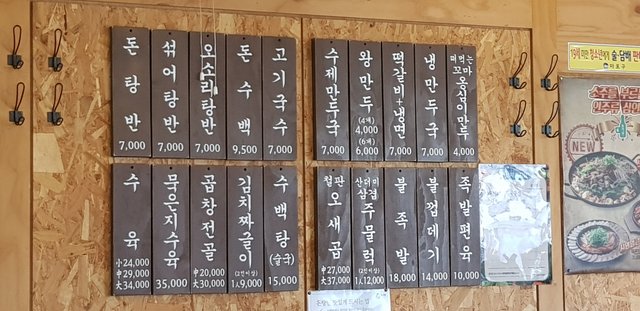 돈탕반 7,000
섞어탕반 7,000
오소리탕반 7,000
돈수백 9,500
고기국수 7,000
수제만두국 7,000
왕만두 (4개) 4,000 (6개) 6,000
떡갈비+냉면 7,000
냉만두국 7,000
떠먹는 꼬마 옹심이만두 4,000
수육 小24,000 中29,000 大34,000
묵은지수육 35,000
곱창전골 中20,000 大30,000
김치짜글이 (2인이상) 1人9,000
수백탕 (술국) 15,000
철판 오새곱 中27,000 大37,000
산더미 삼겹 주물럭 (2인이상) 1人12,000
불족발 18,000
불껍데기 14,000
족발편육 10,000
19세 미만 청소년에게 술·담배 판
마포구
NEW